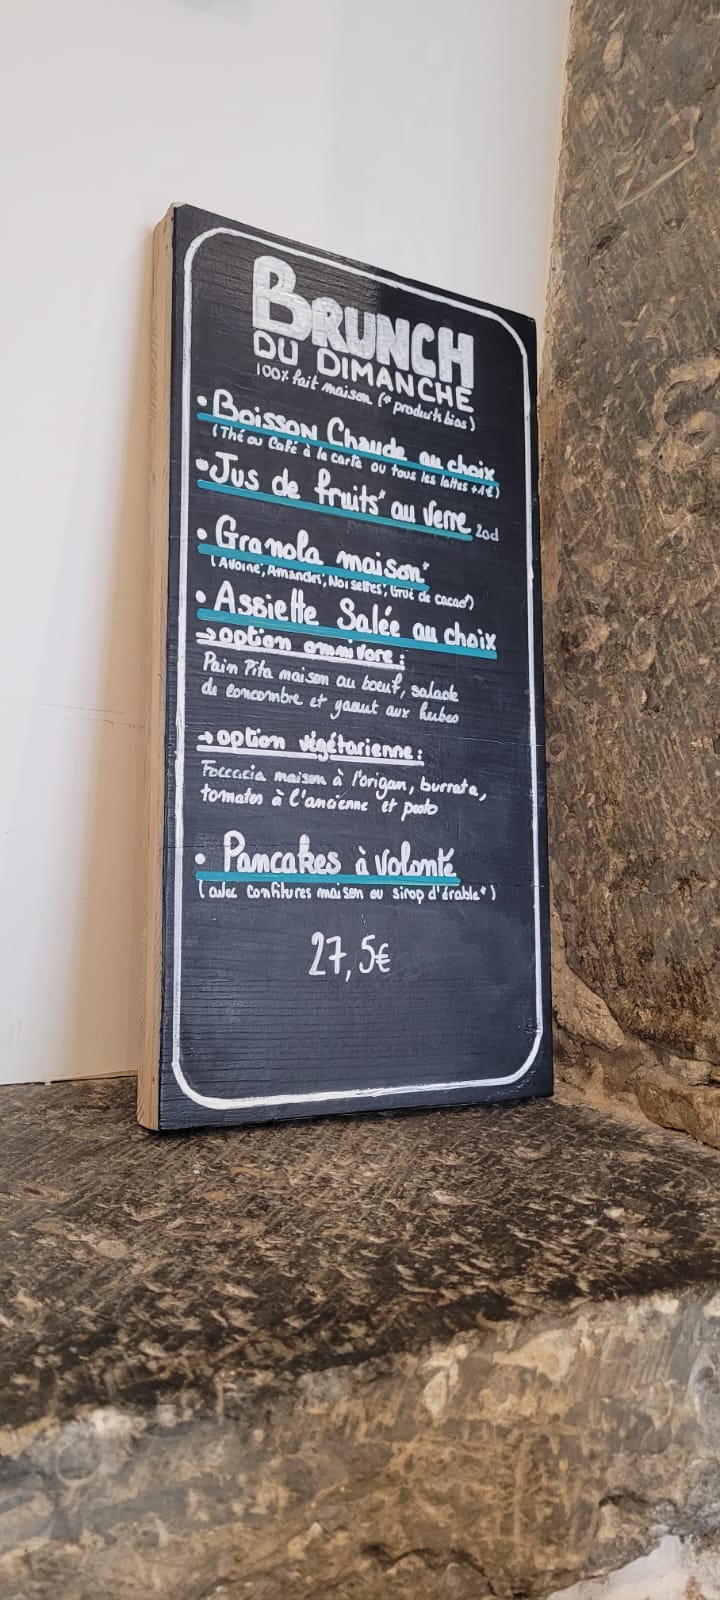 BRUNCH
DU DIMANCHE
100% fait maison (* produits bios)
• Boisson Chaude au choix
(Thé ou Café à la carte ou tous les lattes +1€)
• Jus de fruits* au verre 20cl
• Granola maison*
(Avoine*, Amandes*, Noisettes*, Grué de cacao*)
• Assiette Salée au choix
→ option omnivore :
Pain Pita maison au boeuf, salade
de concombre et yaourt aux herbes
→ option végétarienne :
Foccacia maison à l'origan, burrata,
tomates à l'ancienne et pesto
• Pancakes à volonté
(avec confitures maison ou sirop d'érable*)
27,5€